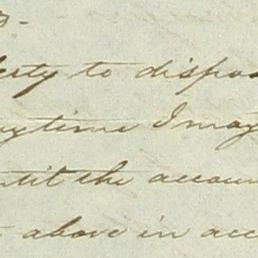 erty to dispos
ytime I may
ntil the accoun
above in acc